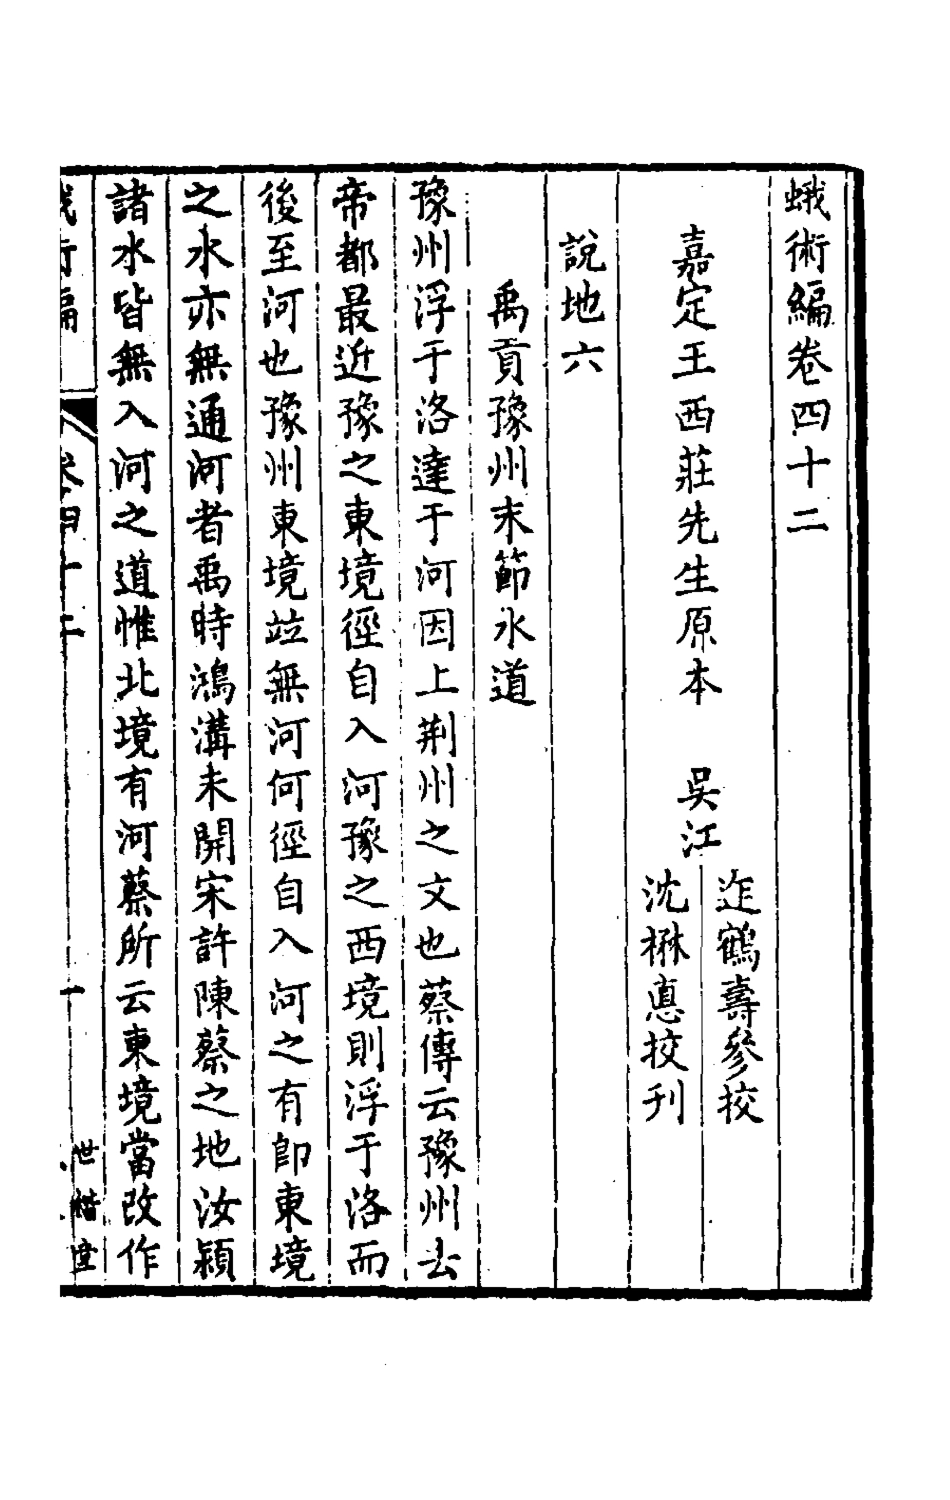 蛾術編卷四十二
嘉定王西莊先生原本　吳江
迮鶴壽參挍
沈楙惪挍刊
說地六
禹貢豫州末節水道
豫州浮于洛達于河因上荆州之文也蔡傳云豫州去
帝都最近豫之東境徑自入河豫之西境則浮于洛而
後至河也豫州東境竝無河何徑自入河之有卽東境
之水亦無通河者禹時鴻溝未開宋許陳蔡之地汝潁
諸水皆無入河之道惟北境有河蔡所云東境當改作
蛾術編
卷四十二
一
世楷堂